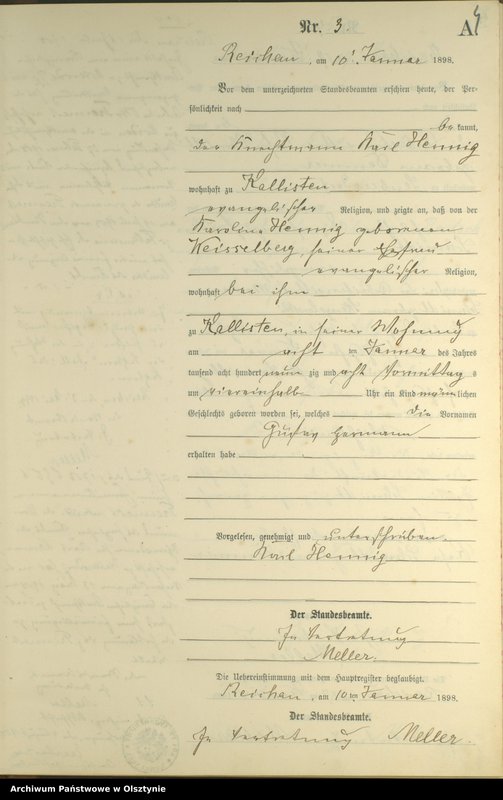 Nr. 3.
A
4
Reichau, am 10t Januar 1898.
Vor dem unterzeichneten Standesbeamten erschien heute, der Per-
sönlichkeit nach
be kannt,
der Knechtmann Karl Hennig
wohnhaft zu Kallisten
evangelischer Religion, und zeigte an, daß von der
Karoline Hennig geborenen
Weisselberg, seiner Ehefrau
evangelischer Religion,
wohnhaft bei ihm
zu Kallisten, in seiner Wohnung
am acht ten Januar des Jahres
tausend acht hundert neun zig und acht Vormittag s
um viereinhalb Uhr ein Kind männlichen
Geschlechts geboren worden sei, welches die Vornamen
Gustav Hermann
erhalten habe
Vorgelesen, genehmigt und unterschrieben.
Karl Hennig
Der Standesbeamte.
In Vertretung
Meller.
Die Uebereinstimmung mit dem Hauptregister beglaubigt.
Reichau, am 10ten Januar 1898.
Der Standesbeamte.
In Vertretung Meller.
Archiwum Państwowe w Olsztynie